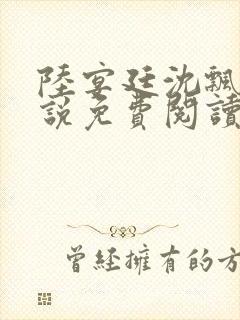 陸宴廷沈飄
說免費閱讀
曾經擁有的方